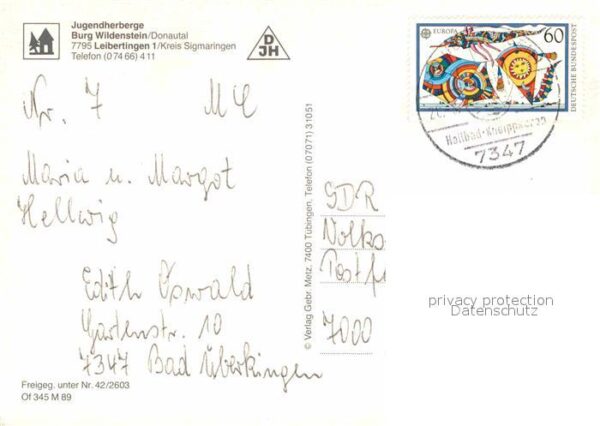 Jugendherberge
Burg Wildenstein/Donautal
7795 Leibertingen 1/Kreis Sigmaringen
Telefon (0 74 66) 4 11
D
JH
Nr. 7
Maria u. Margot
Hellwig
Edith Oswald
Gartenstr. 10
7347 Bad Überkingen
Freigeg. unter Nr. 42/2603
Of 345 M 89
© Verlag Gebr. Metz, 7400 Tübingen, Telefon (07071) 31051
EUROPA
60
DEUTSCHE BUNDESPOST
7347
Volks
Postf
7000
privacy protection
Datenschutz